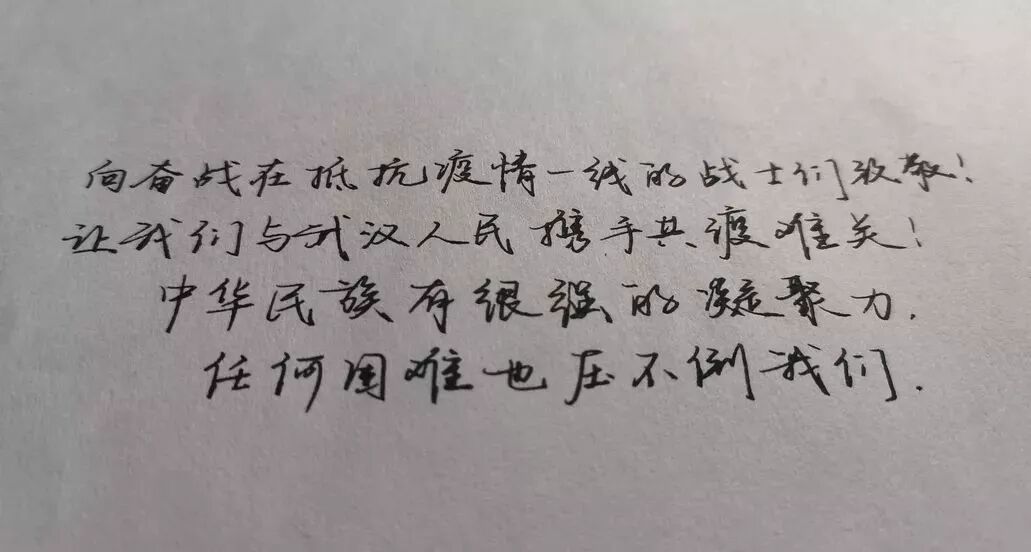 向奋战在抵抗疫情一线的战士们致敬！
让我们与武汉人民携手共渡难关！
中华民族有很强的凝聚力.
任何困难也压不倒我们.